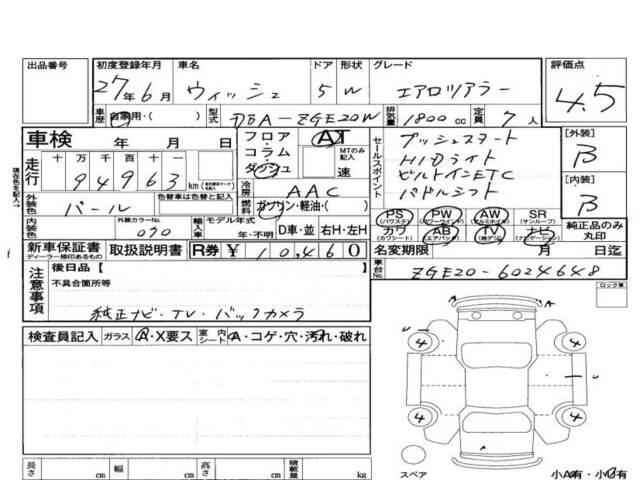 出品番号 初度登録年月 車名 ドア 形状 グレード 評価点
27年6月 ウィッシュ 5 W エアロツアラー 4.5
車歴 自家用・( ) 型式 DBA-ZGE20W 排気量 1800cc 定員 7人
車検 年 月 日 フロア・コラム・ダッシュ AT MTのみ記入 速
セールスポイント プッシュスタート
HIDライト
ビルトインETC
パドルシフト
[外装] B
[内装] B
走行 十 万 千 百 十 一
94963 km
冷房 AAC
外装色 パール 色替車は色替と記入 燃料 ガソリン・軽油・( )
内装色 外装カラーNo. 070 輸入車 モデル年式 年・不明 D車・並 右H・左H
PS (パワステ) PW (パワーウインド) AW (アルミホイル) SR (サンルーフ)
カワ (カワシート) AB (エアバッグ) TV (地デジ) ナビ (ナビゲーション) 純正品のみ丸印
新車保証書 ディーラー捺印あるもの 取扱説明書 R券 ¥ 10,460 名変期限 月 日迄
現在色を記入→
注意事項 後日品【
不具合箇所等
純正ナビ・TV・バックカメラ
車台No. ZGE20-6024648
ロック車
検査員記入 ガラス A・X要ス 室内シート A・コゲ・穴・汚れ・破れ
U A
4 4
A U
4 4
A
スペア 小A有・小U有
長さ cm 幅 cm 高さ cm 積載量 kg